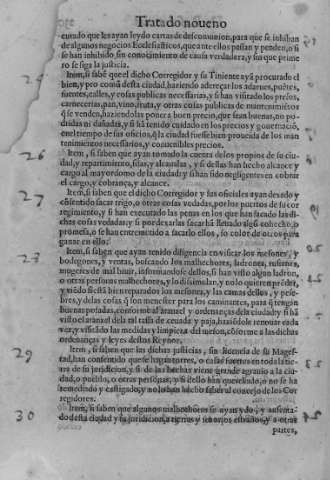 Tratado noueno
cuando que les ayan leydo cartas de descomunion, para que se inhiban
de algunos negocios Ecclesiasticos, que ante ellos passan y penden, o si
se han inhibido sin conocimiento de causa verdadera, y sus que prime
ro se siga la justicia.
Item, si sabe que el dicho Corregidor y su Tiniente aya procurado el
bien, y pro comũ desta ciudad, haziendo adereçar los adarues, puẽtes,
fuentes, calles, y cosas publicas necessarias, y si han visitado los presos,
carnecerias, pan, vino, fruta, y otras cosas publicas de mantenimiẽtos
q̃ se venden, haziendolas poner a buen precio, que sean buenas, no po
dridas ni dañadas, y si hã tenido cuidado en los precios y gouernació,
en el tiempo de sus oficios, q̃ la ciudad fuesse bien proueida de los man
tenimientos necessarios, y conuenibles precios.
26
Item, si saben que aya tomado la cuenta de los propios de su ciu-
dad, y repartimiento, sisas, y alcaualas, y si dellas han hecho alcance y
cargo al mayordomo de la ciudad y si han sido negligentes en cobrar
el cargo, y cobrança, y alcance.
27
Item, si saben que el dicho Corregidor y sus oficiales ayan dado y
cõsentido sacar trigo, o otras cosas vedadas, por los puertos de su cor
regimiento, y si han executado las penas en los que han sacado las di-
chas cosas vedadas; y si por dexarlas sacar hã lleuado algũ cohecho, o
promesa, o se han entremetido a sacarlo ellos, so color de otros para
ganar en ello.
Item, si saben que aya tenido diligencia en visitar los mesones, y
bodegones, y ventas, buscando los malhechores, ladrones, rufianes,
mugeres de mal biuir, informandose dellos, si han visto algun ladron,
o otras personas malhechores, y lo dissimulan, y no lo quieren prẽder,
y viẽdo si estã bien reparados los mesones, y las camas dellos, y pese-
bres, y delas cosas q̃ son menester para los caminantes, para q̃ tengan
buenas posadas, cõforme al aranzel y ordenanças dela ciudad: y si hã
visto el aranzel dela tal tassa de ceuada y paja, haziẽdole renouar cada
vez, y visitãdo las medidas y limpieza del meson, cõforme a las dichas
ordenanças y leyes destos Reynos.
29
Item, si saben que las dichas justicias, sin licencia de su Mages-
tad, han consentido que se hiziessen torres, o casas fuertes en toda la tie
rra de su jurisdicion, y si de las hechas viene grande agrauio a la ciu-
dad, o pueblo, o otras personas, y si dello han querellado, o no se ha
remediado y castigado, y no lo han hecho saber al consejo de los Cor
regidores.
30
Item, si saben que algunos malhechores se ayan ydo, y ausenta-
do desta ciudad y su jurisdicion, a tierras y señorios estraños, y a otras
partes,